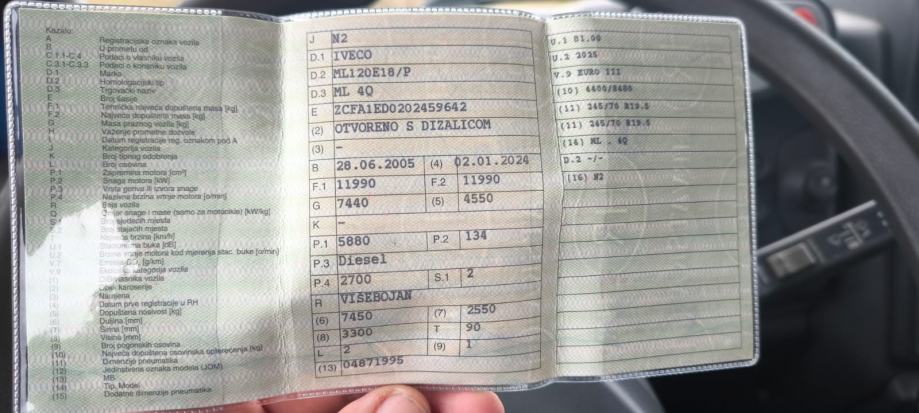 Kazalo:
A Registracijska oznaka vozila
B U prometu od
C.1.1-C.4 Podaci o vlasniku vozila
C.3.1-C.3.3 Podaci o korisniku vozila
D.1 Marka
D.2 Homologacijski tip
D.3 Trgovački naziv
E Broj šasije
F.1 Tehnička najveća dopuštena masa [kg]
F.2 Najveća dopuštena masa [kg]
G Masa praznog vozila [kg]
H Važenje prometne dozvole
Datum registracije reg. oznakom pod A
J Kategorija vozila
K Broj tipnog odobrenja
L Broj osovina
P.1 Zapremina motora [cm³]
P.2 Snaga motora [kW]
P.3 Vrsta goriva ili izvora snage
P.4 Nazivna brzina vrtnje motora [o/min]
R Boja vozila
Q Omjer snage i mase (samo za motocikle) [kW/kg]
Broj sjedećih mjesta
Broj stajaćih mjesta
brzina [km/h]
buka [dB]
motora kod mjerenja stac. buke [o/min]
[g/km]
kategorija vozila
vlasnika vozila
Oblik karoserije
Namjena
Datum prve registracije u RH
(5) Dopuštena nosivost [kg]
(6) Duljina [mm]
(7) Širina [mm]
(8) Visina [mm]
(9) Broj pogonskih osovina
(10) Najveća dopuštena osovinska opterećenja [kg]
(11) Dimenzije pneumatika
(12) Jedinstvena oznaka modela (JOM)
(13) MB
(14) Tip, Model
(15) Dodatne dimenzije pneumatika
J N2
D.1 IVECO
D.2 ML120E18/P
D.3 ML 4Q
E ZCFA1ED0202459642
(2) OTVORENO S DIZALICOM
(3) –
B 28.06.2005 (4) 02.01.2024
F.1 11990 F.2 11990
G 7440 (5) 4550
K –
P.1 5880 P.2 134
P.3 Diesel
P.4 2700 S.1 2
R VIŠEBOJAN
(6) 7450 (7) 2550
(8) 3300 T 90
L 2 (9) 1
(13) 04871995
U.1 81.00
U.2 2025
V.9 EURO III
(10) 4400/8480
(11) 245/70 R19.5
(11) 265/70 R19.5
(14) ML . 4Q
D.2 -/-
(16) N2